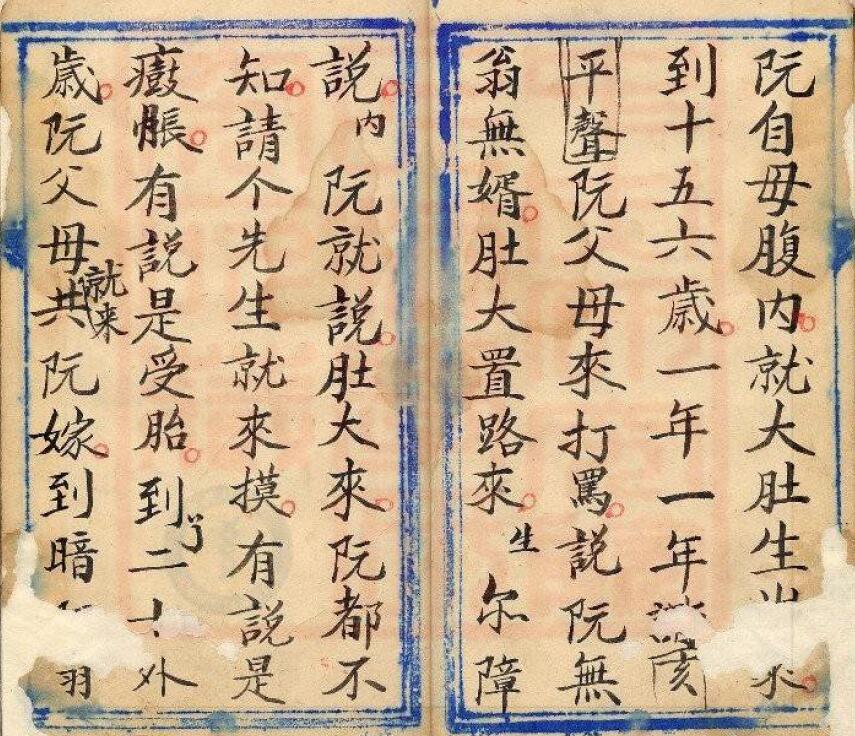 阮自母腹內就大肚生水
到十五六歲一年一年
平聲阮父母來打罵說阮無
翁無婿肚大置路來生尔障
說內阮就說肚大來阮都不
知請个先生就來摸有說是
脹有說是受胎到了二十外
歲阮父母就来共阮嫁到暗羽